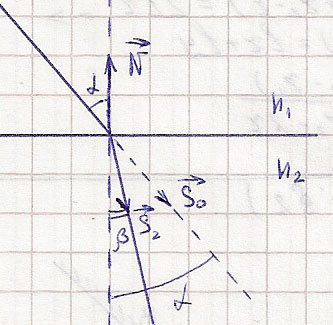 α
N⃗
n₁
n₂
S⃗₀
S⃗₂
β
α